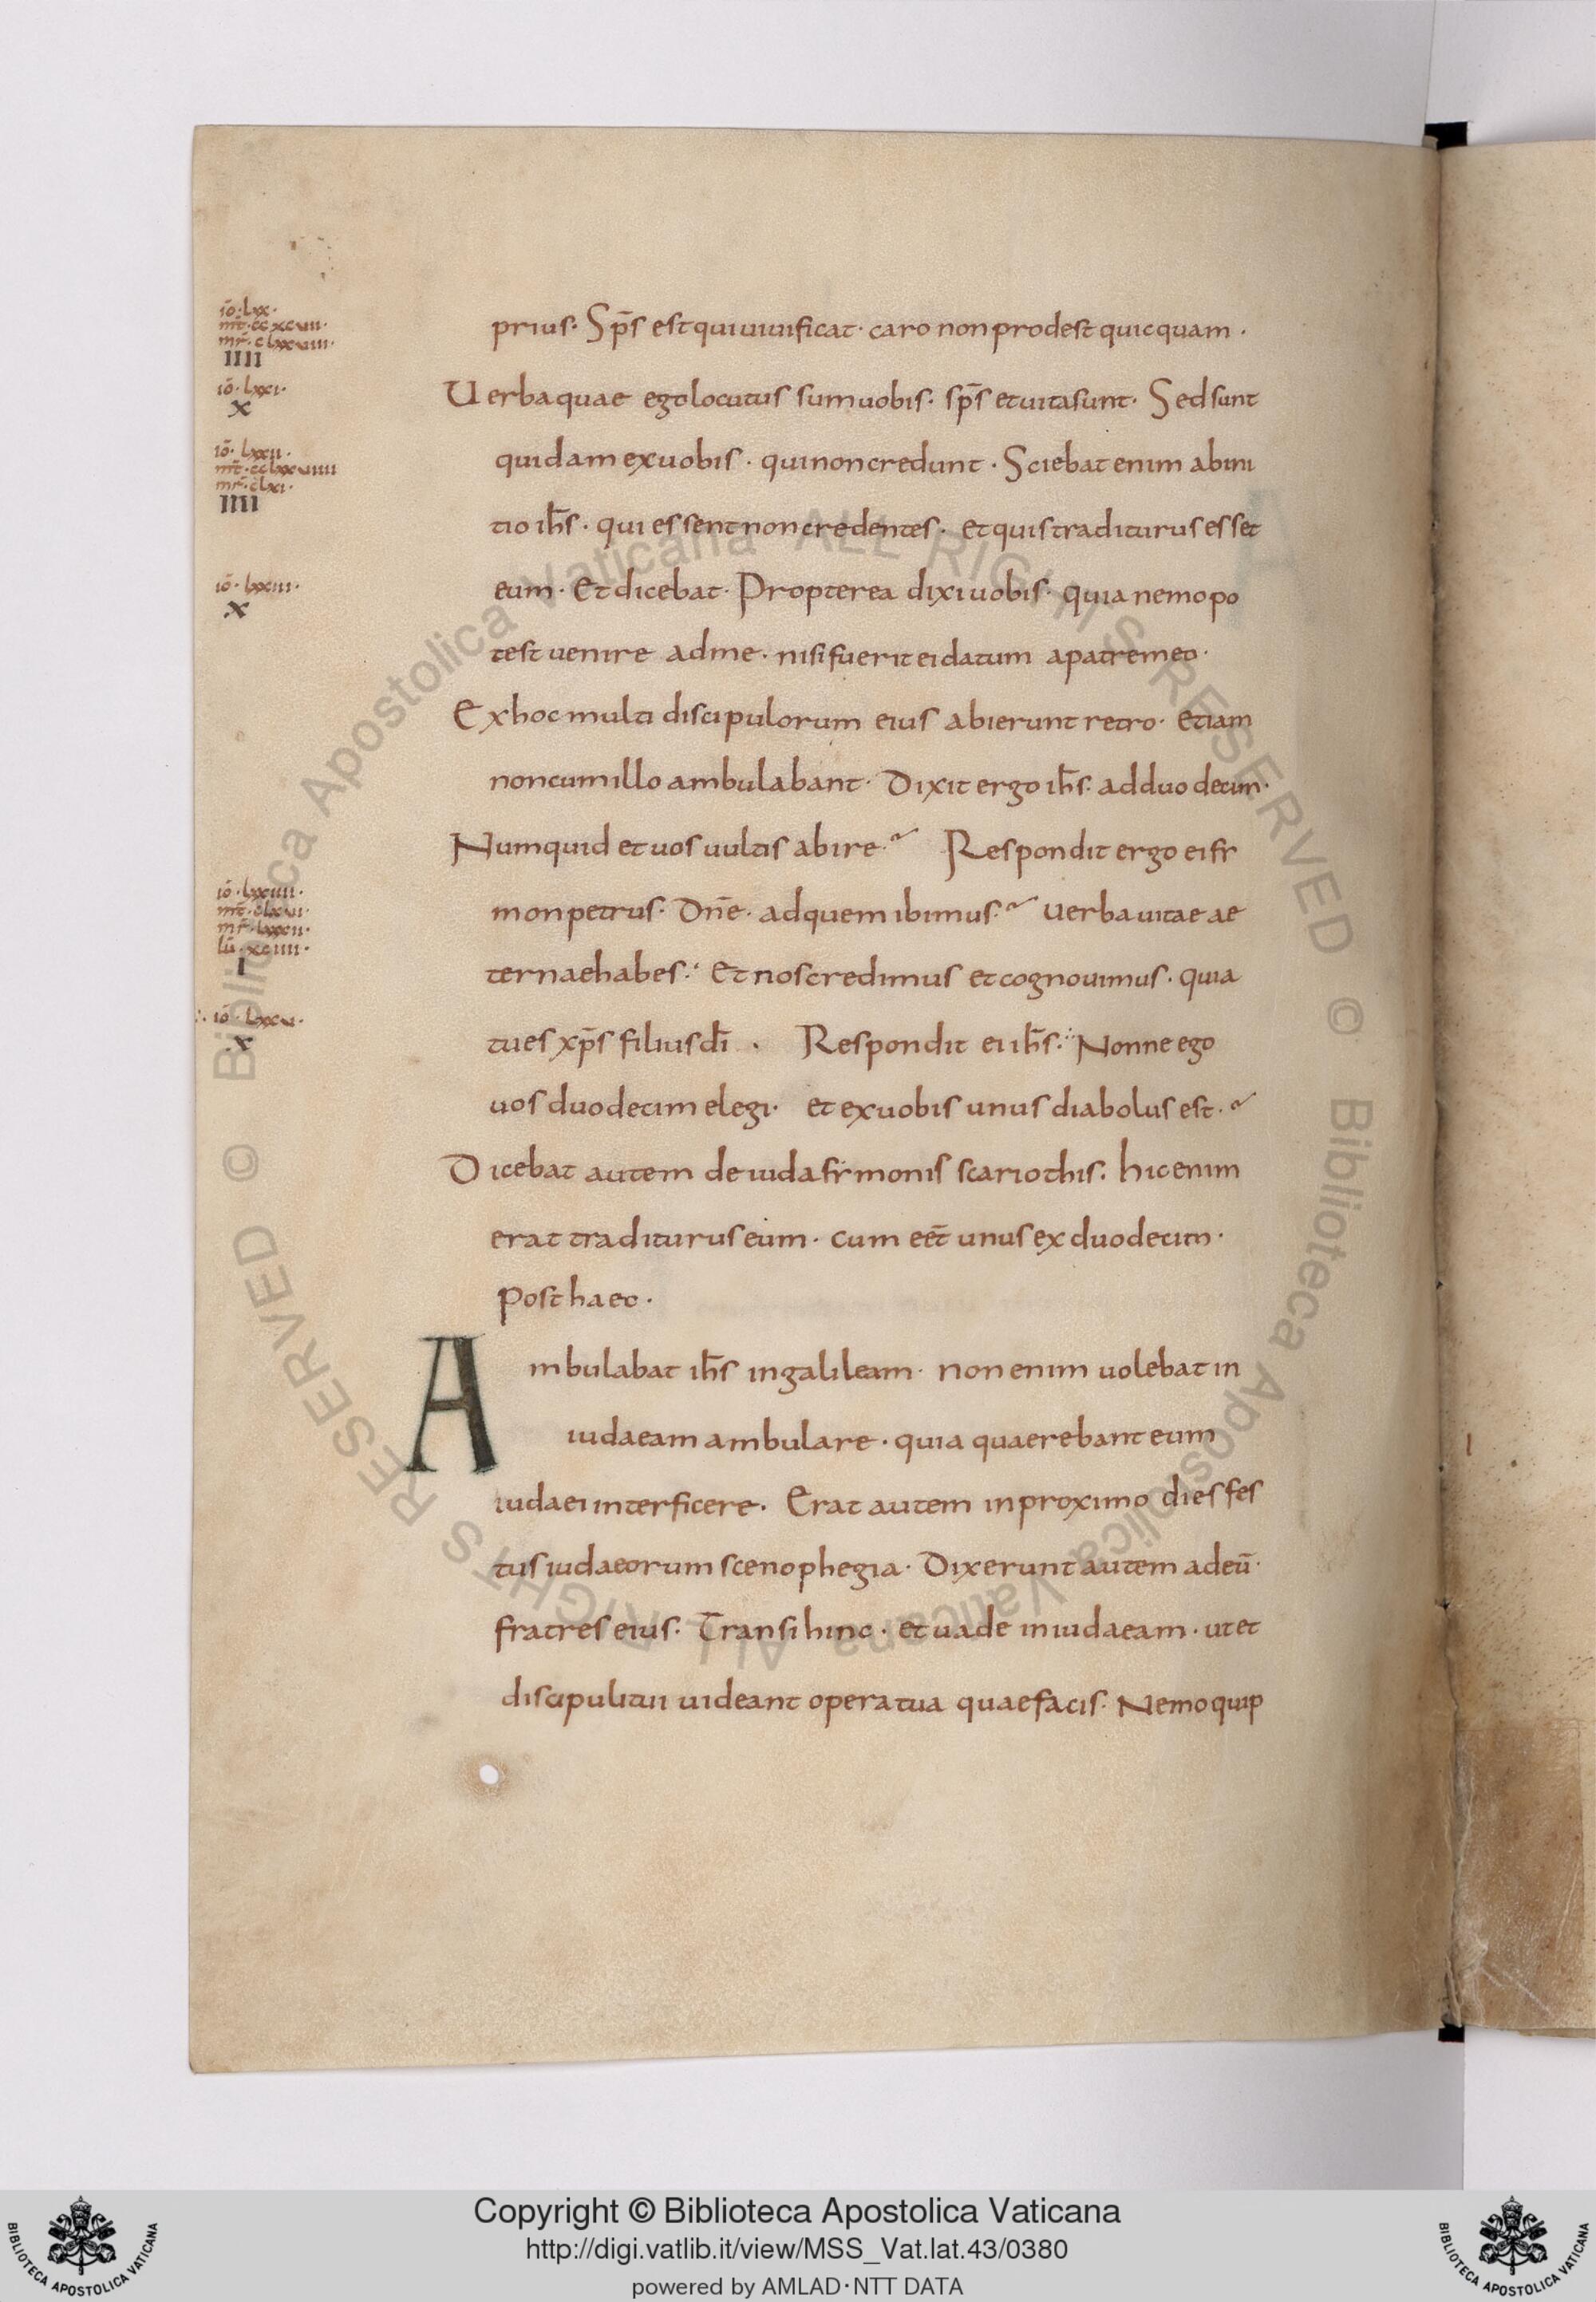 iō · lxx ·
mt̄ · cc xcuii ·
mr̄ · c lxxuiii ·
IIII
prius · Sps̄ est qui uiuificat · caro non prodest quicquam ·
iō · lxxi ·
x
Uerba quae ego locutus sum uobis · sps̄ et uita sunt · Sed sunt
iō · lxxii ·
mt̄ · cclxxuiiii
mr̄ · clxi ·
IIII
quidam ex uobis · qui non credunt · Sciebat enim ab ini
tio ihs̄ · qui essent non credentes · et quis traditurus esset
iō · lxxiii ·
x
eum · Et dicebat · Propterea dixi uobis · quia nemo po
test uenire ad me · nisi fuerit ei datum a patre meo ·
Ex hoc multi discipulorum eius abierunt retro · etiam
non cum illo ambulabant · Dixit ergo ihs̄ · ad duodecim ·
Numquid et uos uultis abire · Respondit ergo ei si
iō · lxxiiii ·
mt̄ · clxui ·
mr̄ · lxxxii ·
lū · xciiii ·
I
mon petrus · Dnē · ad quem ibimus · Uerba uitae ae
ternae habes · Et nos credimus et cognouimus · quia
iō · lxxu ·
x
tu es xps̄ filius dī · Respondit ei ihs̄ · Nonne ego
uos duodecim elegi · et ex uobis unus diabolus est ·
Dicebat autem de iuda simonis scariothis · hic enim
erat traditurus eum · cum eēt unus ex duodecim ·
Post haec ·
Ambulabat ihs̄ in galileam · non enim uolebat in
iudaeam ambulare · quia quaerebant eum
iudaei interficere · Erat autem in proximo dies fes
tus iudaeorum scenophegia · Dixerunt autem ad eū ·
fratres eius · Transi hinc · et uade in iudaeam · ut et
discipuli tui uideant opera tua quae facis · Nemo quip
© Biblioteca Apostolica Vaticana ALL RIGHTS RESERVED
© Biblioteca Apostolica Vaticana ALL RIGHTS RESERVED
Copyright © Biblioteca Apostolica Vaticana
http://digi.vatlib.it/view/MSS_Vat.lat.43/0380
powered by AMLAD·NTT DATA
BIBLIOTECA APOSTOLICA VATICANA
BIBLIOTECA APOSTOLICA VATICANA